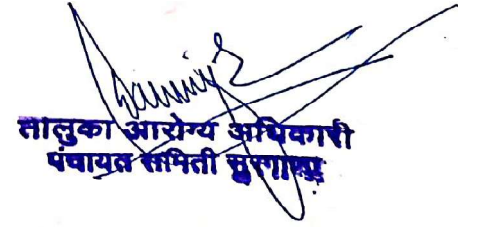 तालुका आरोग्य अधिकारी
पंचायत समिती सुरगाणा